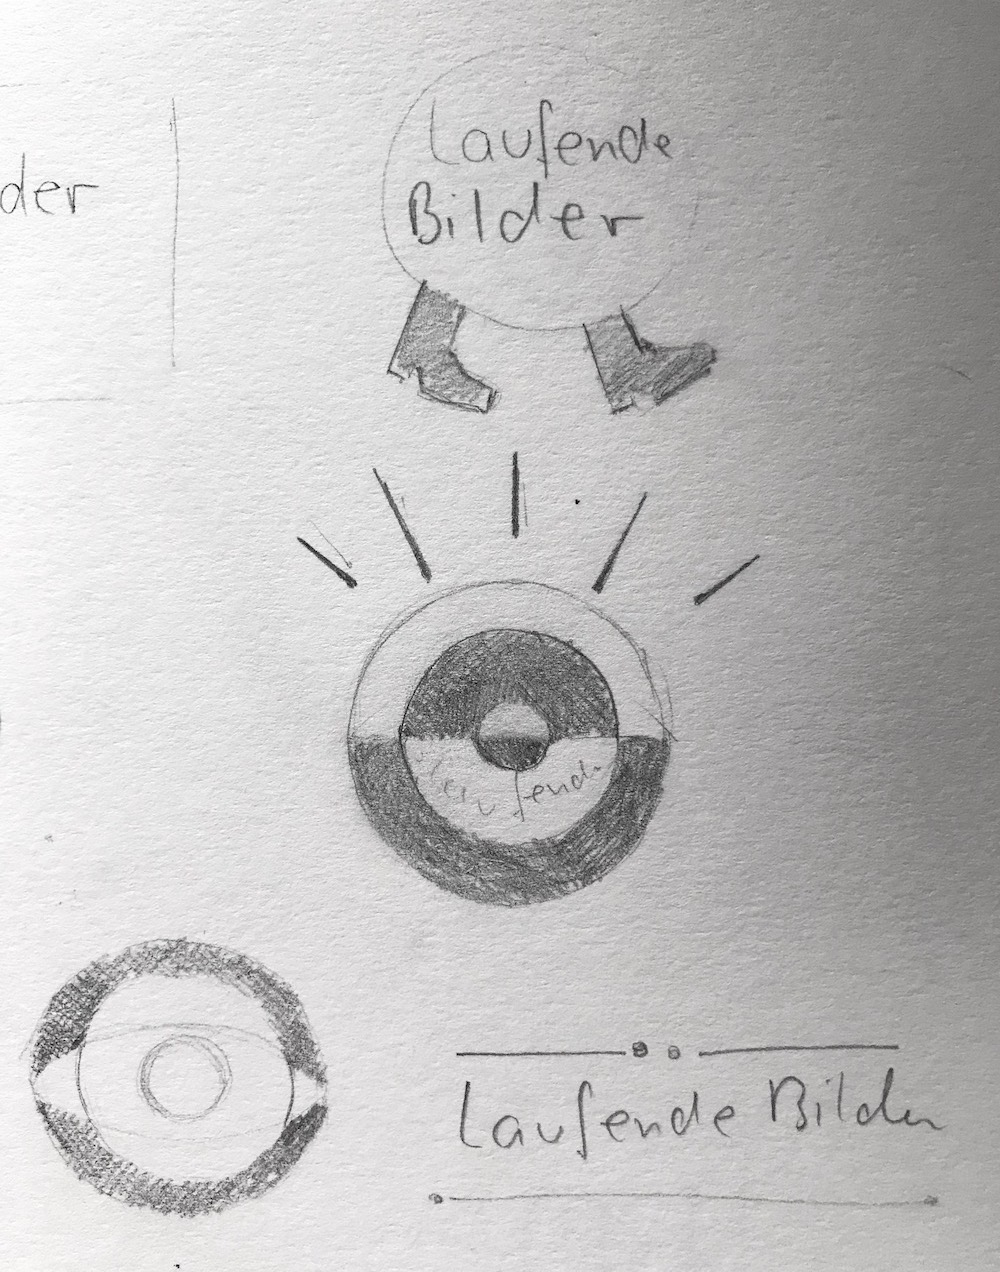 Laufende
Bilder
der
Laufende
Laufende Bilder